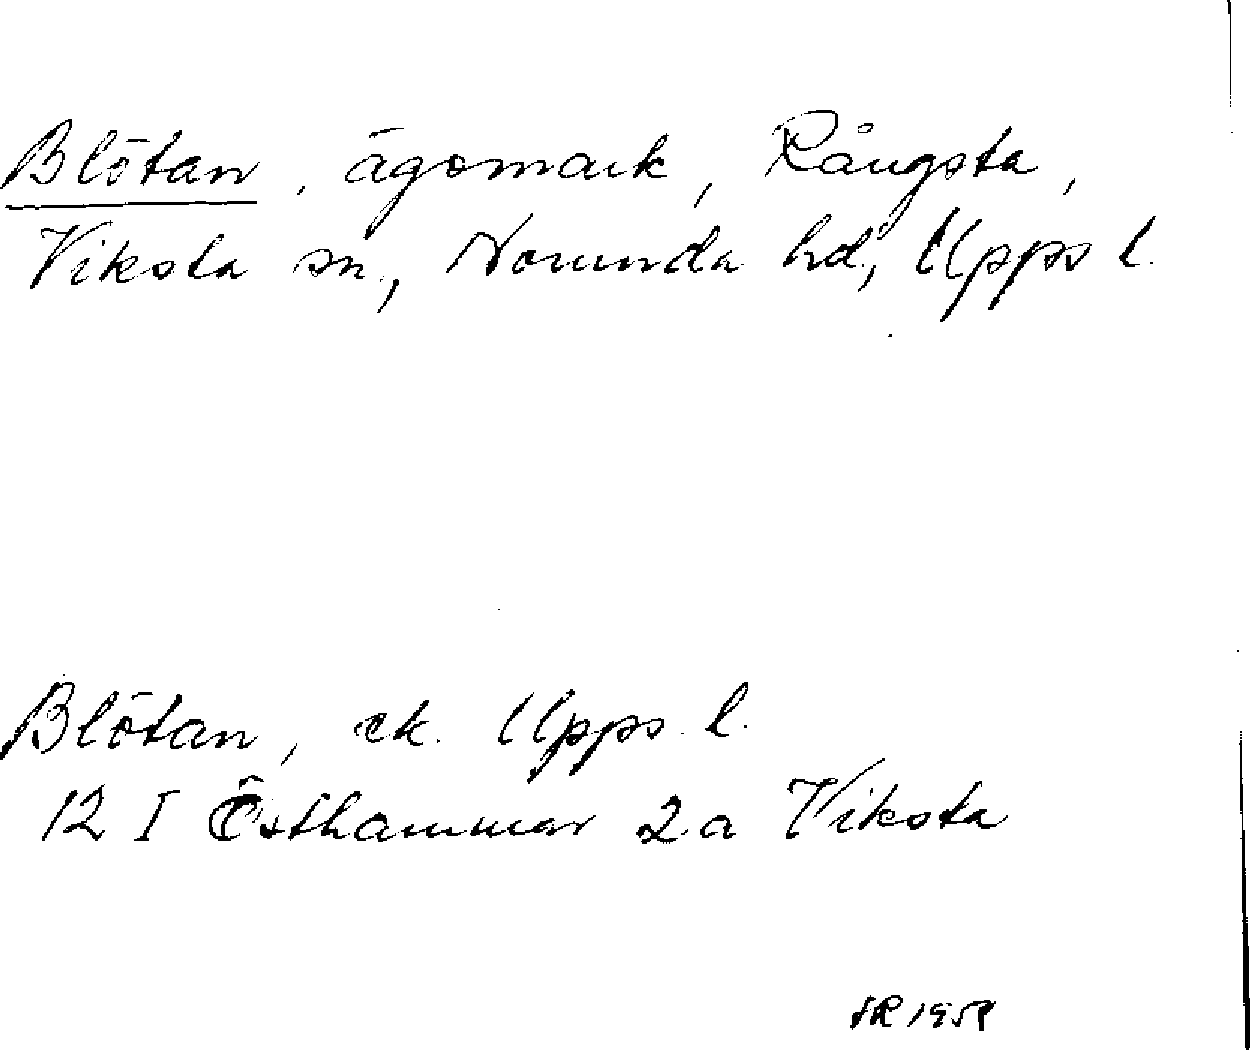 Blötan, ägomark, Rångsta,
Viksta sn, Norunda hd, Upps l.
Blötan, ek. Upps. l.
12 I Östhammar 2 a Viksta